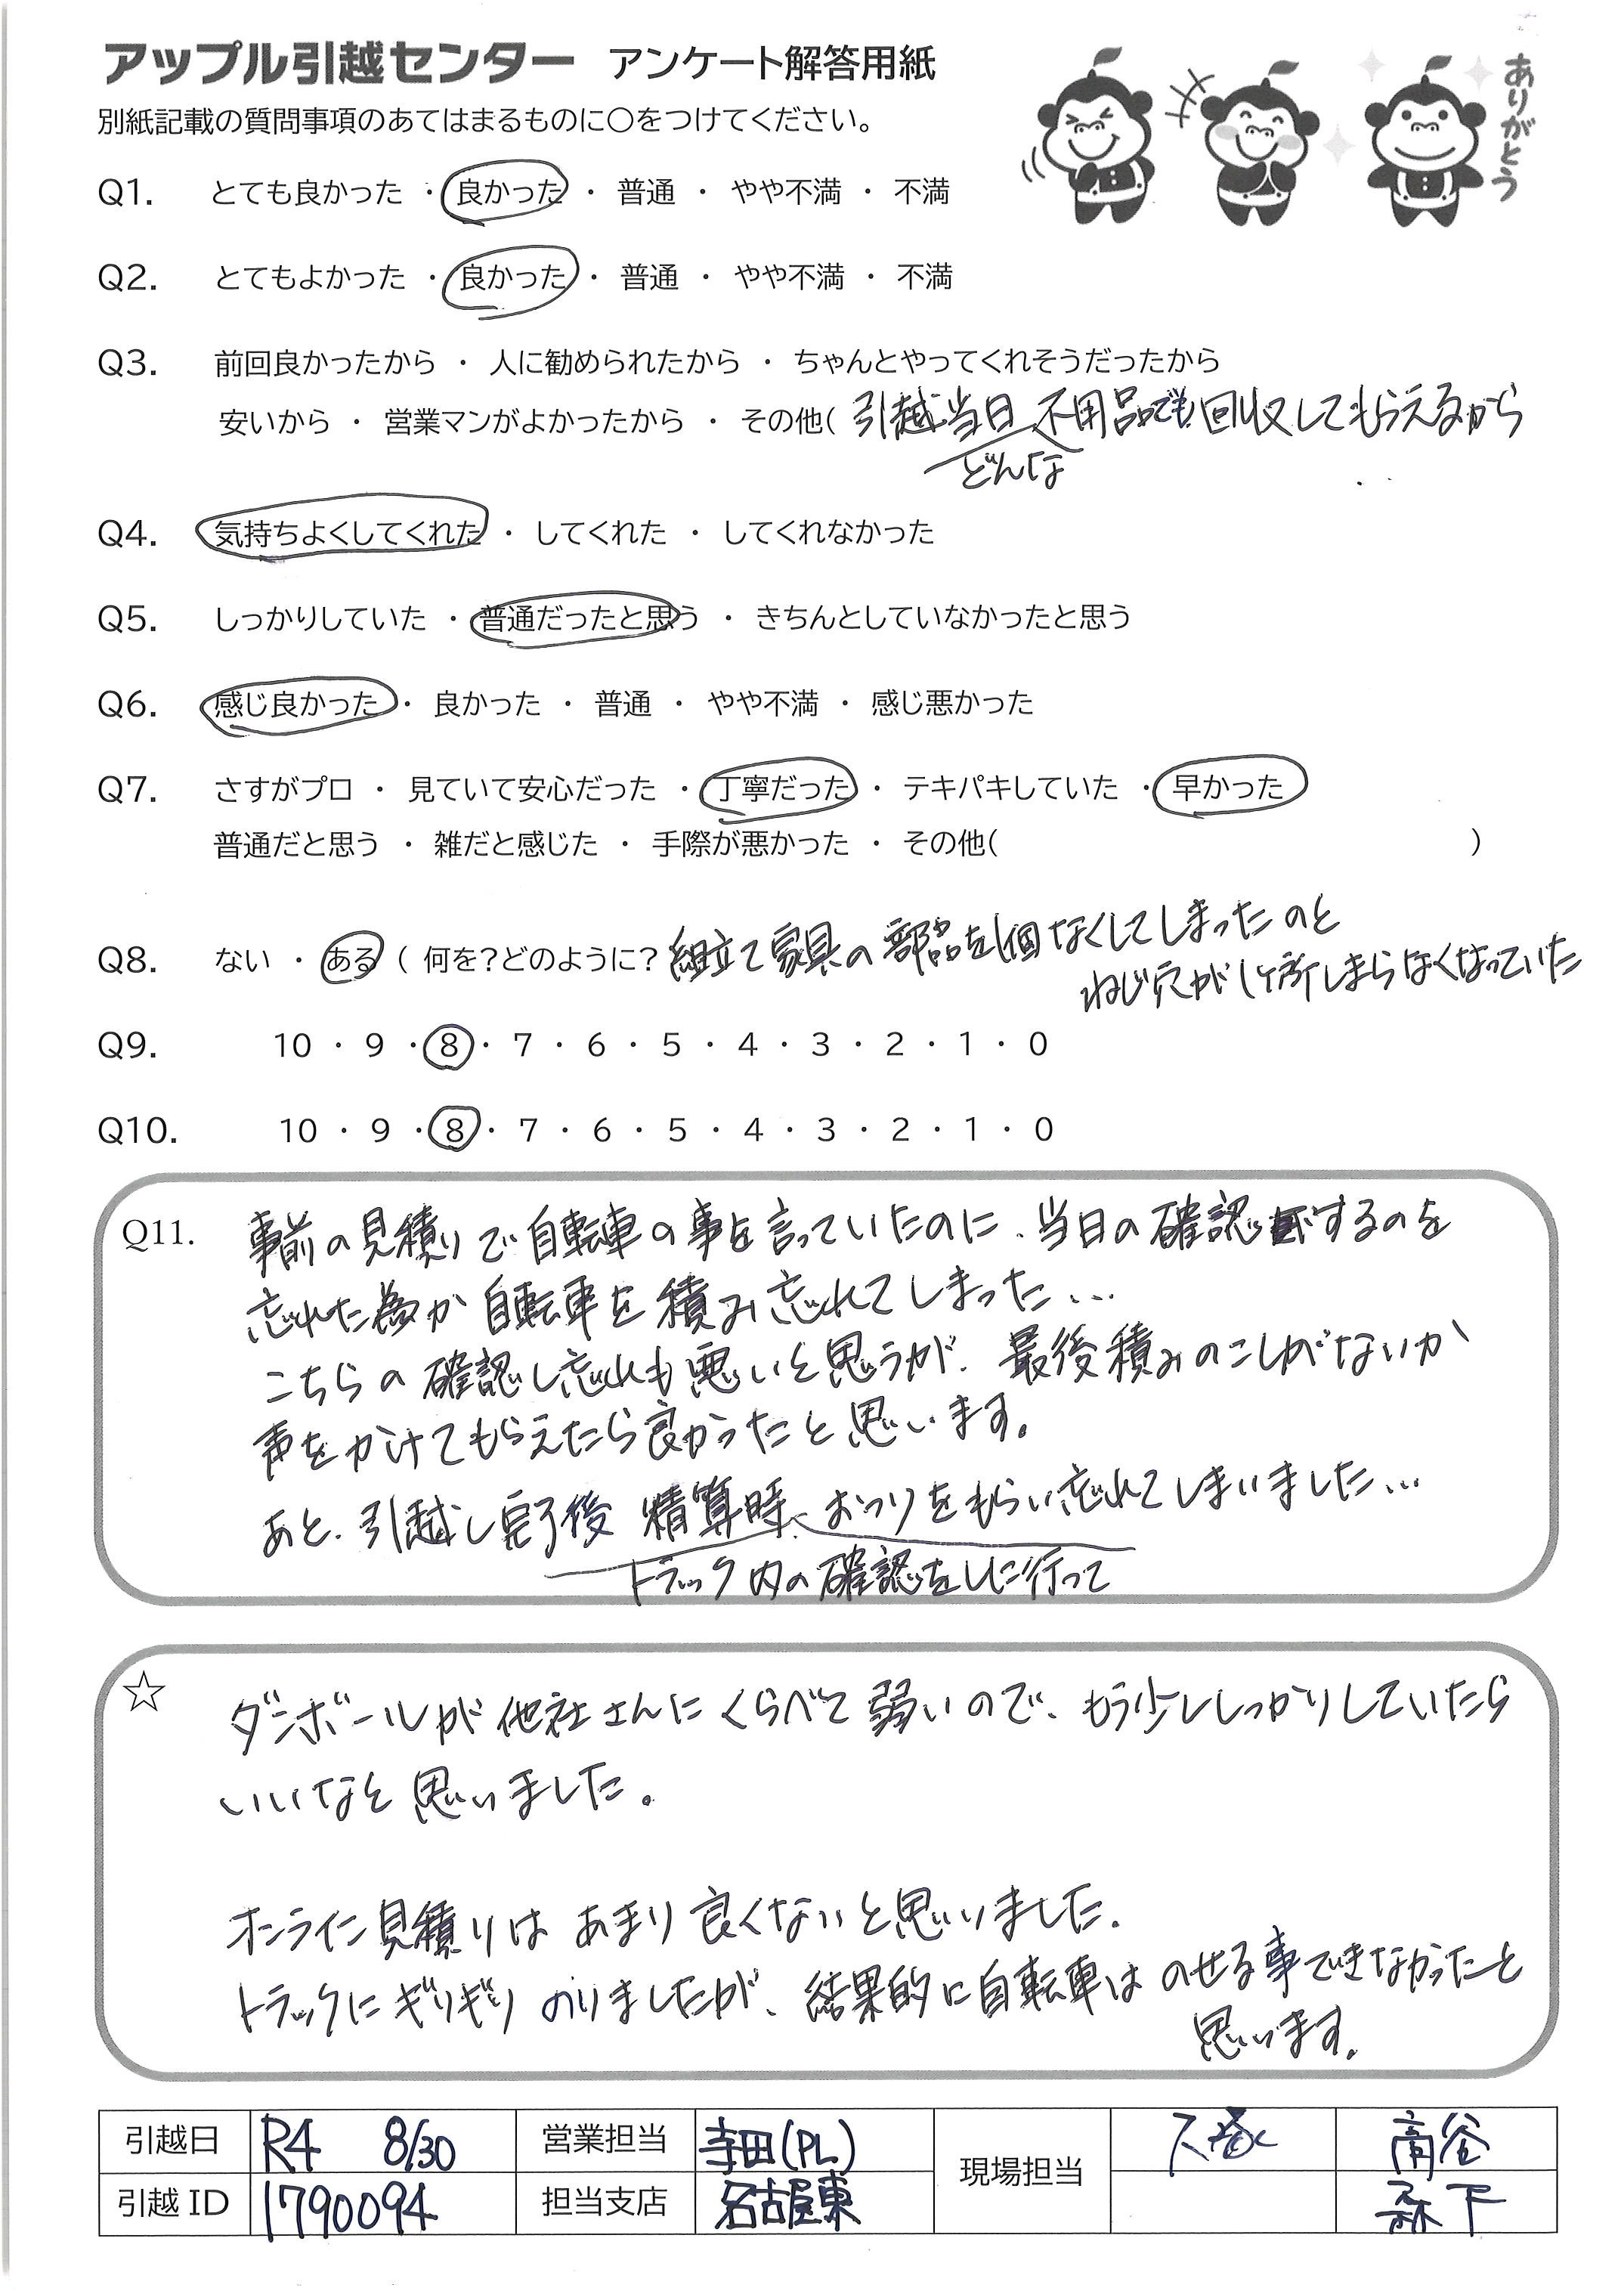 アップル引越センター アンケート解答用紙
ありがとう
別紙記載の質問事項のあてはまるものに〇をつけてください。
Q1. とても良かった ・ 良かった ・ 普通 ・ やや不満 ・ 不満
Q2. とてもよかった ・ 良かった ・ 普通 ・ やや不満 ・ 不満
Q3. 前回良かったから ・ 人に勧められたから ・ ちゃんとやってくれそうだったから
安いから ・ 営業マンがよかったから ・ その他( 引越当日 不用品でも回収してもらえるから
どんな
Q4. 気持ちよくしてくれた ・ してくれた ・ してくれなかった
Q5. しっかりしていた ・ 普通だったと思う ・ きちんとしていなかったと思う
Q6. 感じ良かった ・ 良かった ・ 普通 ・ やや不満 ・ 感じ悪かった
Q7. さすがプロ ・ 見ていて安心だった ・ 丁寧だった ・ テキパキしていた ・ 早かった
普通だと思う ・ 雑だと感じた ・ 手際が悪かった ・ その他( )
Q8. ない ・ ある ( 何を?どのように? 組立て家具の部品を1個なくしてしまったのと
ねじ穴が1ヶ所しまらなくなっていた
Q9. 10 ・ 9 ・ 8 ・ 7 ・ 6 ・ 5 ・ 4 ・ 3 ・ 2 ・ 1 ・ 0
Q10. 10 ・ 9 ・ 8 ・ 7 ・ 6 ・ 5 ・ 4 ・ 3 ・ 2 ・ 1 ・ 0
Q11. 事前の見積りで自転車の事を言っていたのに、当日の確認するのを
忘れた為か自転車を積み忘れてしまった…
こちらの確認し忘れも悪いと思うが、最後積みのこしがないか
声をかけてもらえたら良かったと思います。
あと、引越し完了後 精算時、おつりをもらい忘れてしまいました…
トラック内の確認をしに行って
☆ ダンボールが他社さんにくらべて弱いので、もう少ししっかりしていたら
いいなと思いました。
オンライン見積りはあまり良くないと思いました。
トラックにギリギリのりましたが、結果的に自転車はのせる事できなかったと
思います。
引越日 R4 8/30 営業担当 寺田(PL) 現場担当 高谷
引越ID 1790094 担当支店 名古屋東 森下